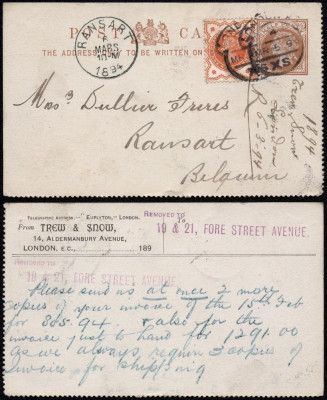 POST CARD
THE ADDRESS ONLY TO BE WRITTEN ON
RANSART
6
MARS
10-M
1894
Mess. Dullier Frères
Ransart
Belgium
1894
Trew Snow
London
R 6-3-94
TELEGRAPHIC ADDRESS — EARLSTON, — LONDON.
REMOVED TO
19 & 21, FORE STREET AVENUE.
From TREW & SNOW,
To
14, ALDERMANBURY AVENUE,
LONDON, E.C.,
189
REMOVED TO
19 & 21, FORE STREET AVENUE.
Please send us at once 2 more
copies of your invoice of the 15th Feb
for 885.94. & also for the
invoice just to hand for 1291.00
as we always require 3 copies of
invoice for shipping